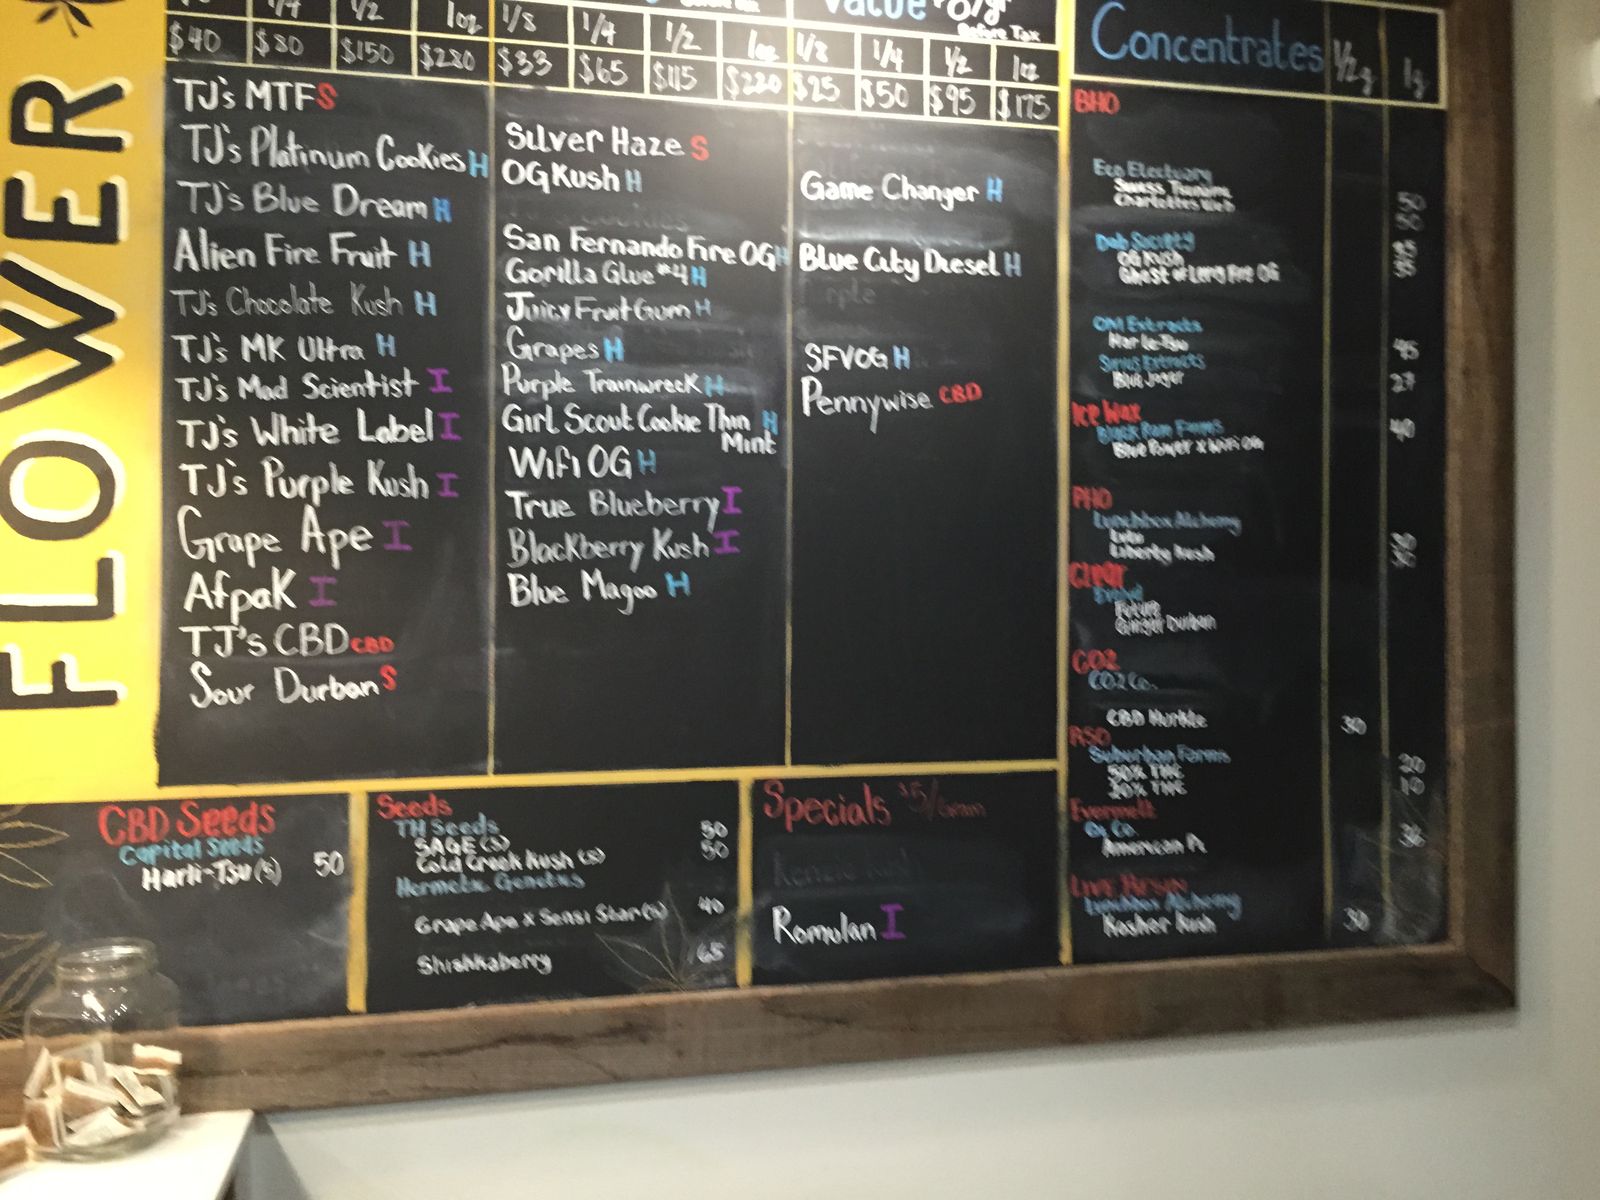 FLOWER
1/4 1/2 1oz
$40 $80 $150 $280
TJ's MTF S
TJ's Platinum Cookies H
TJ's Blue Dream H
Alien Fire Fruit H
TJ's Chocolate Kush H
TJ's MK Ultra H
TJ's Mad Scientist I
TJ's White Label I
TJ's Purple Kush I
Grape Ape I
Afpak I
TJ's CBD CBD
Sour Durban S
1/8 1/4 1/2 1oz
$33 $65 $115 $220
Silver Haze S
OG Kush H
San Fernando Fire OG H
Gorilla Glue #4 H
Juicy Fruit Gum H
Grapes H
Purple Trainwreck H
Girl Scout Cookie Thin H
Mint
Wifi OG H
True Blueberry I
Blackberry Kush I
Blue Magoo H
Value
Before Tax
1/8 1/4 1/2 1oz
$25 $50 $95 $175
Game Changer H
Blue City Diesel H
SFVOG H
Pennywise CBD
Concentrates 1/2g 1g
BHO
Eco Electuary
Swiss Tsunami 50
Charlottes Web 50
Dab Society
OG Kush 35
Ghost of Larry Fire OG 35
OM Extracts
Harle-Tsu 45
Sirius Extracts
Blue Jager 27
Ice Wax
Black Ram Farms 40
Blue Power x Wifi OG
PHO
Lunchbox Alchemy
30
Liberty Kush 30
Clear
Evolvd
Future
Ginger Durban
CO2
CO2 Co.
CBD Hurkle 30
RSO
Suburban Farms
50% THC 20
30% THC 10
Evermelt
Oil Co.
American Pi 36
Live Resin
Lunchbox Alchemy
Kosher Kush 30
CBD Seeds
Capital Seeds
Harli-Tsu (5) 50
Seeds
TH Seeds
SAGE (5) 50
Cold Creek Kush (5) 50
Hermetic Genetics
Grape Ape x Sensi Star (5) 40
Shishkaberry 65
Specials $5/Gram
Romulan I